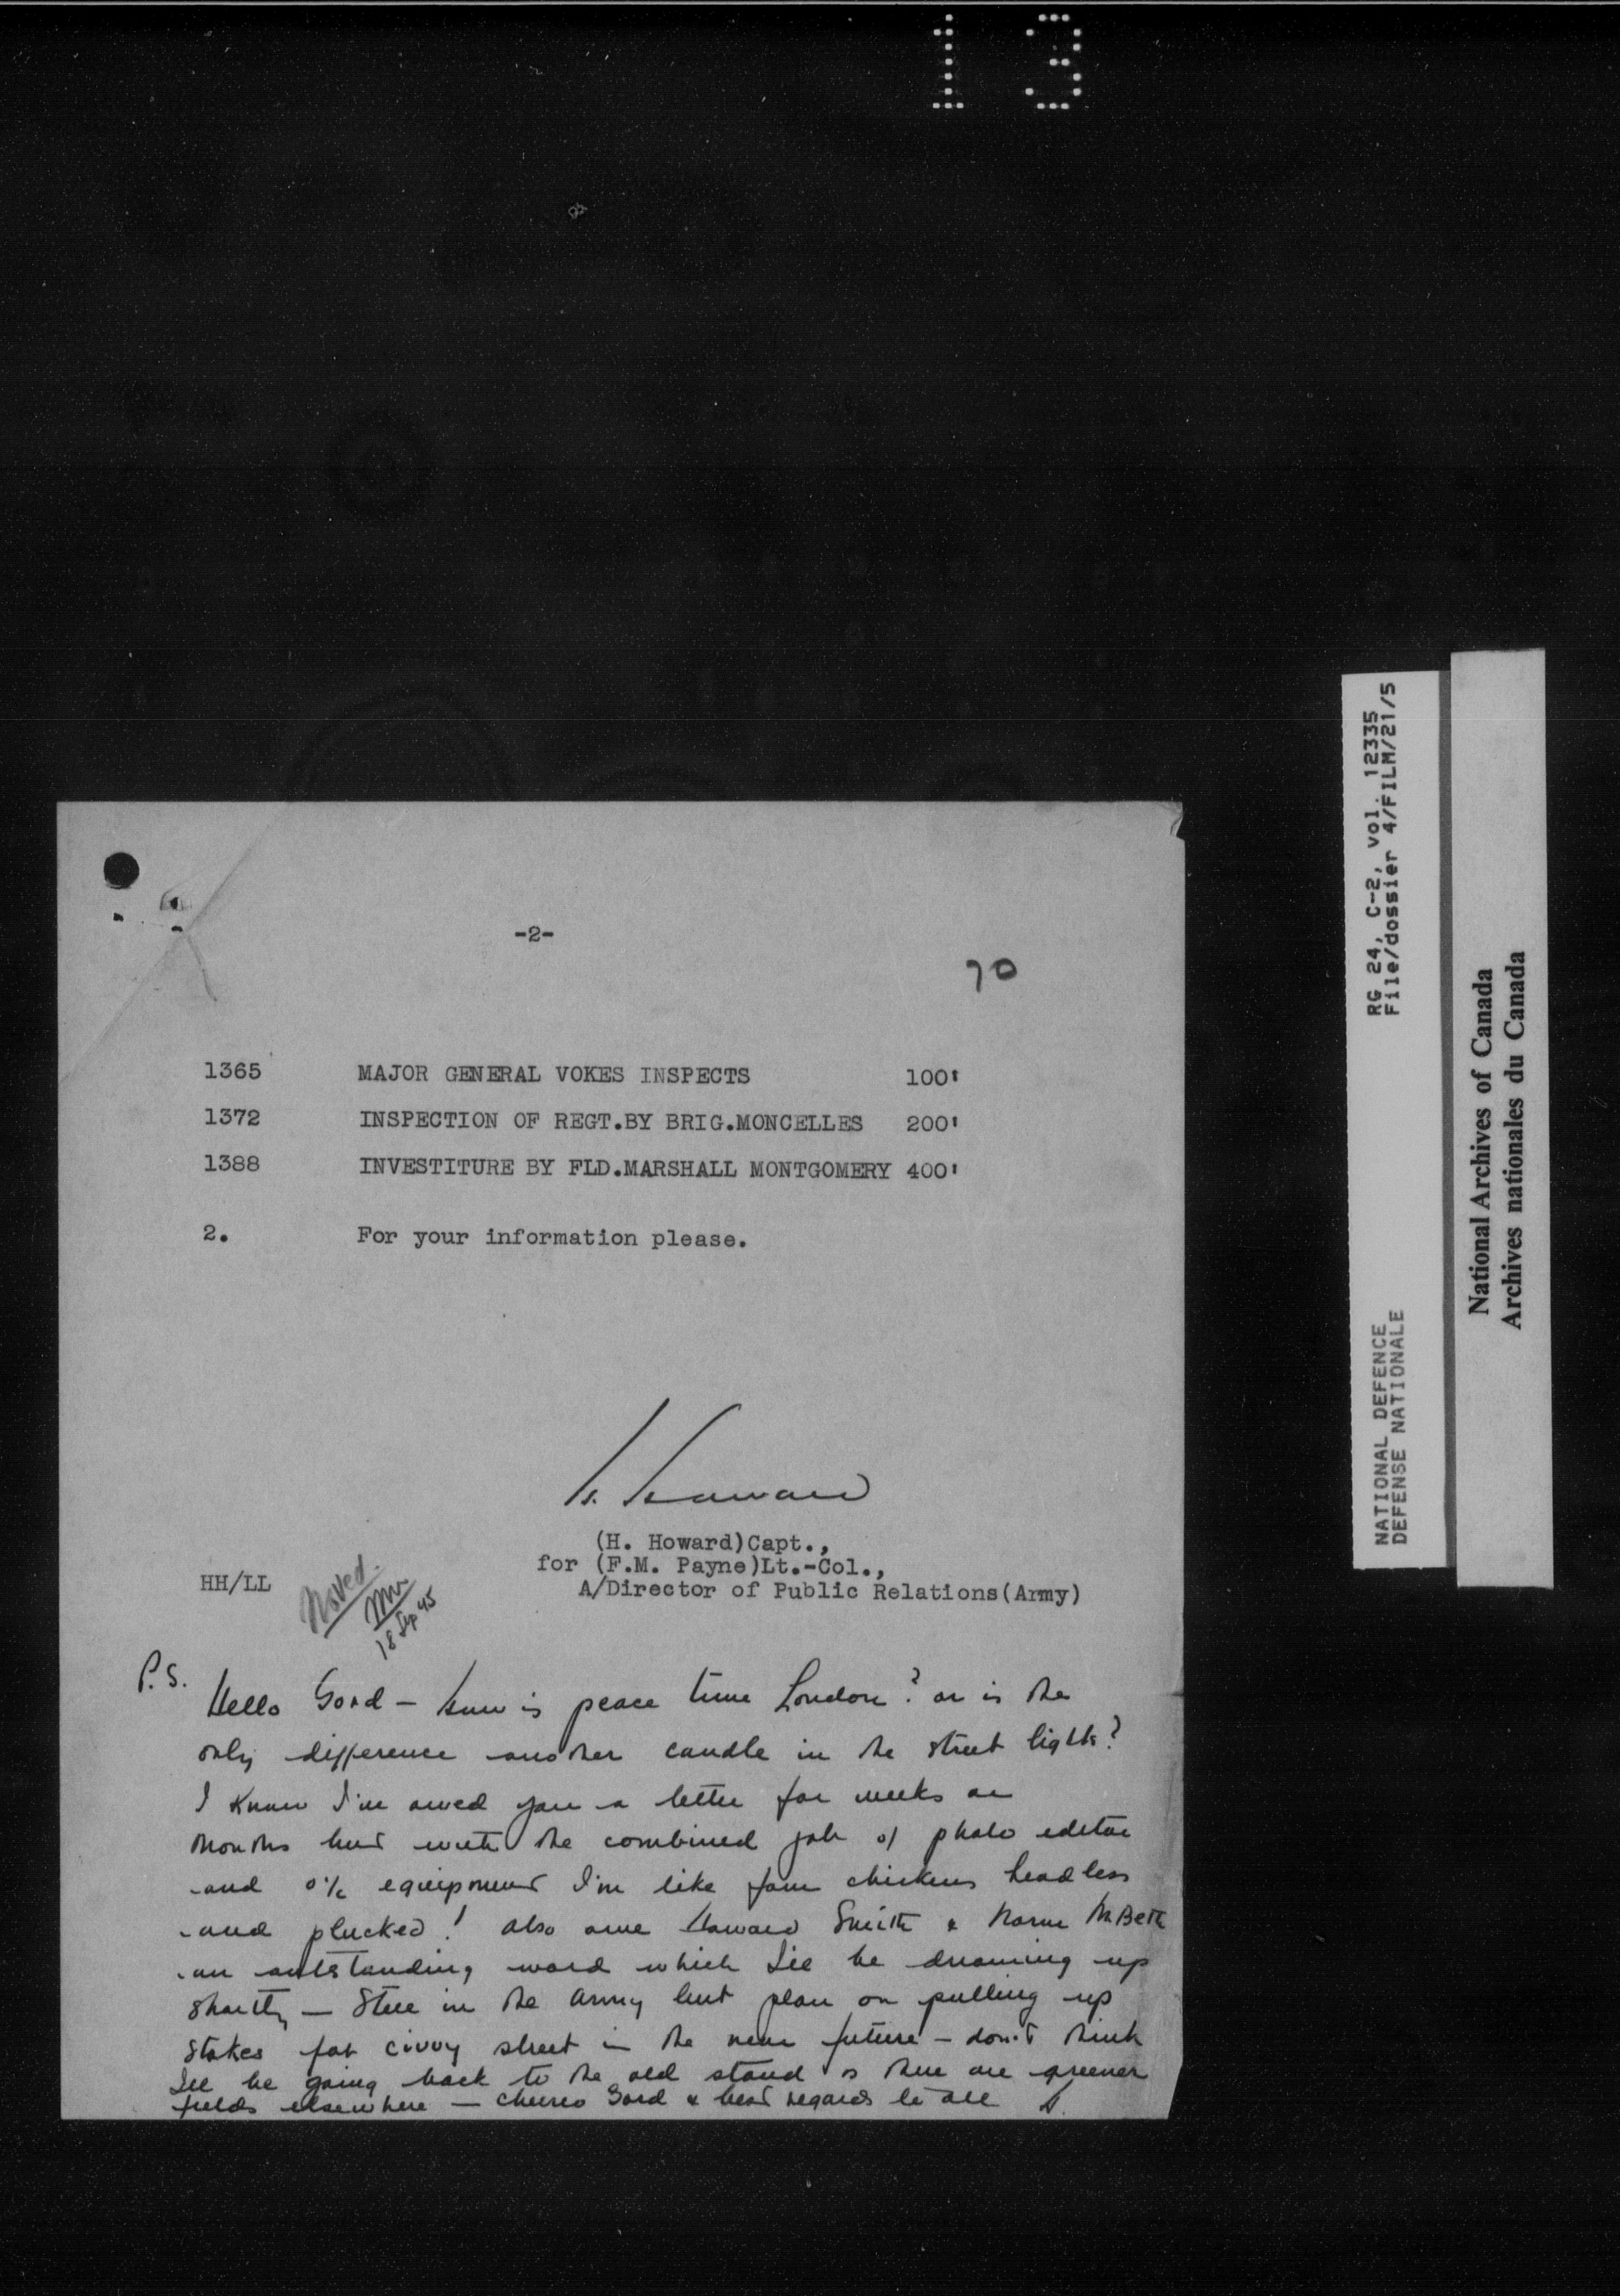 13
-2-
70
1365 MAJOR GENERAL VOKES INSPECTS 100'
1372 INSPECTION OF REGT.BY BRIG.MONCELLES 200'
1388 INVESTITURE BY FLD.MARSHALL MONTGOMERY 400'
2. For your information please.
H. Howard
(H. Howard)Capt.,
for (F.M. Payne)Lt.-Col.,
HH/LL A/Director of Public Relations(Army)
Noted
18 Sep 45
P.S. Hello Gord - how is peace time London? or is the
only difference another candle in the street lights?
I know I've owed you a letter for weeks or
months but with the combined job of photo editor
and o/c equipment I'm like four chickens headless
and plucked! also owe Howard Smith & Norm McBeth
an outstanding word which I'll be dreaming up
shortly - Still in the army but plan on pulling up
stakes for civvy street in the near future - don't think
I'll be going back to the old stand as there are greener
fields elsewhere - cheerio Gord & best regards to all H.
RG 24, C-2, vol. 12335
File/dossier 4/FILM/21/5
NATIONAL DEFENCE
DEFENSE NATIONALE
National Archives of Canada
Archives nationales du Canada